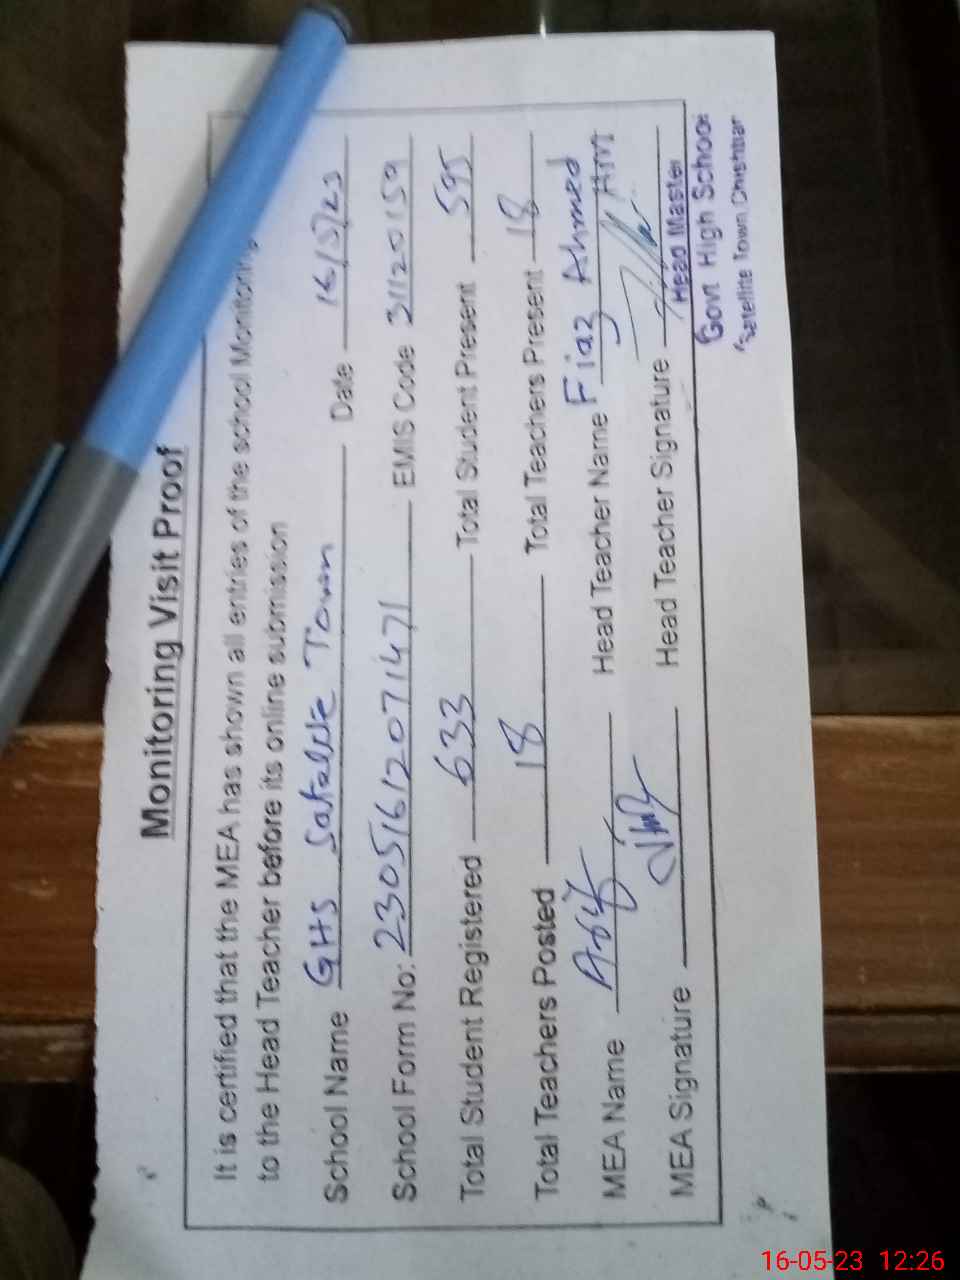 Monitoring Visit Proof
It is certified that the MEA has shown all entries of the school Monitoring
to the Head Teacher before its online submission
School Name GHS Satellite Town Date 16/5/23
School Form No: 23051612071471 EMIS Code 31120159
Total Student Registered 633 Total Student Present 595
Total Teachers Posted 18 Total Teachers Present 18
MEA Name Asif Head Teacher Name Fiaz Ahmed
MEA Signature Head Teacher Signature
Head Master
Govt High School
Satellite Town Chishtian
16-05-23 12:26